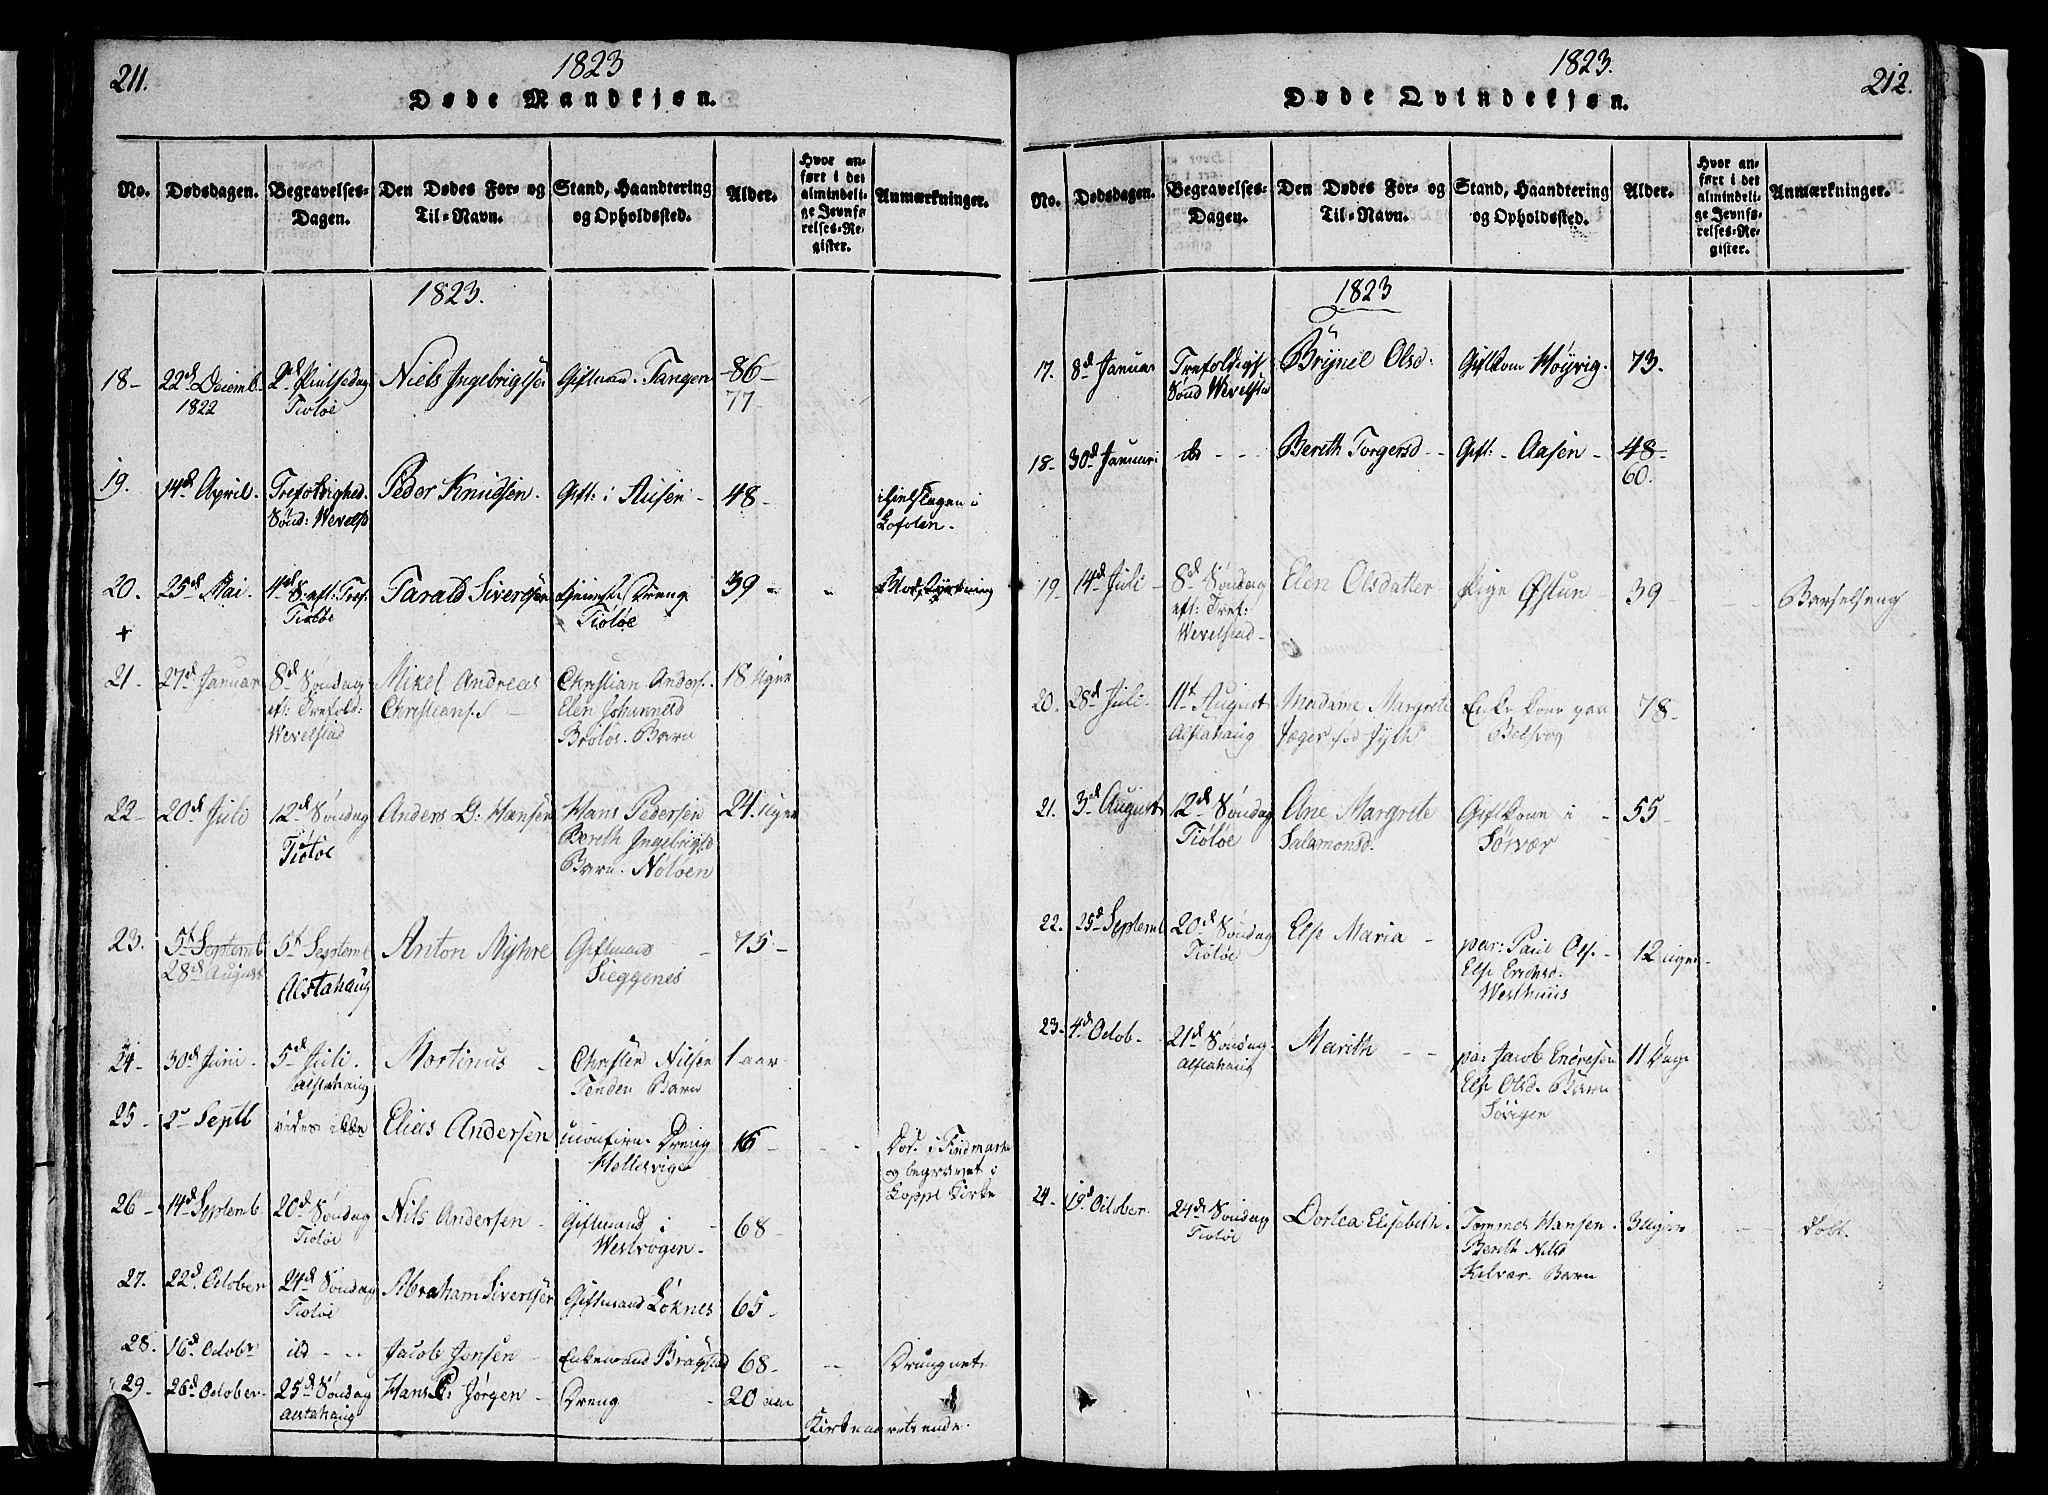 211.
1823
Døde Mandkjøn.
No.
Dødsdagen.
Begravelses-
Dagen.
Den Dødes For- og
Til-Navn.
Stand, Haandtering
og Opholdssted.
Alder.
Hvor an-
ført i det
almindeli-
ge Jevnfø-
relses-Re-
gister.
Anmærkninger.
1823.
18-
22d Decemb.
1822
2d Pintsedag
Tiotøe
Niels Ingebrigtse.
Giftmand. Tangen
86-
77-
19.
14d April.
Trefoldighed.
Sønd: Wevelst
Peder Knudsen.
Gift: i Ausen-
48-
ihielslagen i
Lofoten.
20.
+
25d Mai.
4d S: eft: Tref:
Tiotøe
Tarald Siversen
Dreng
Tiotøe
39-
21-
27d Januar
8d Søndag
eft: Trefold:
Wevelstad
Mikel Andreas
Christians.
Christian Anders.
Elen Johannesd
Brotøe. Barn
18 Uger
22-
20d Juli
12d Søndag
Tiøtøe
Anders D: Hansen
Hans Pedersen
Bereth Ingebrigtsd
Barn.
24 Uger
23.
5t Septemb
28d August
5t Septemb
Alstahaug
Anton Myhre
Giftmand
Sieggenes
75-
24-
30d Juni.
5d Juli.
Alstahaug
Mortinus
Christen Nilsen
Tenden Barn
1 aar
25-
2d Septb
vides ikke
Elias Andersen
uconfirm. Dreng
Hellesvigen
16-
Død i Findmarken
og begravet i
Loppe Kirke
26-
14d Septemb.
20d Søndag
Tiotøe
Nils Andersen
Giftmand i
Westvogen.
68-
27.
22d October
24d Søndag
Tiotøe
Abraham Sivertsen
Giftmand Løknes
65-
28.
16d Octobr
ild
Jacob Jensen
Enkemand
68-
Drungnet
29-
26d October.
25d Søndag
Alstahaug
Hans P: Jørgen-
Dreng
20 aar
1823.
212.
Døde Qvindekjøn.
No.
Dødsdagen.
Begravelses-
Dagen.
Den Dødes For- og
Til-Navn.
Stand, Haandtering
og Opholdssted.
Alder.
Hvor an-
ført i det
almindeli-
ge Jevnfø-
relses-Re-
gister.
Anmærkninger.
1823
17.
8d Januar
Trefoldigh
Sønd Wevelsta
Brynel Olsd.
Giftkone Høyvig.
73.
18-
30d Januari
do
Bereth Torgersd-
Gift: Aasen-
48-
60.
19.
14d Juli-
8d Søndag
eft: Tref:
Wevelstad-
Elen Olsdatter
Pige Østun
39-
Barselseng
20.
28d Juli.
11t August
Alstahaug
Madame Margrete
Jæger fød Jyth
Enke Kone paa
Belsvog
78-
21.
3d August
12d Søndag
Tiøtøe
Ane Margrete
Salamonsd.
Giftkone i
Sørvær
55-
22.
25d Septemb
20d Søndag
Tiøtøe
Else Maria-
par: Paul Ols.
Else Ericksd.
Westhuus
12 uger-
23.
4d Octob.
21d Søndag.
Alstahaug
Marith
par: Jacob Endresen
Else Olsd. Barn
Sørigen
11 Dage
24-
19d October.
24d Søndag
Tiotøe
Dortea Elisebeth.
Tommes Hansen.
Bereth Nilsd
Kilvær. Barn
3 Uger
Døbt.